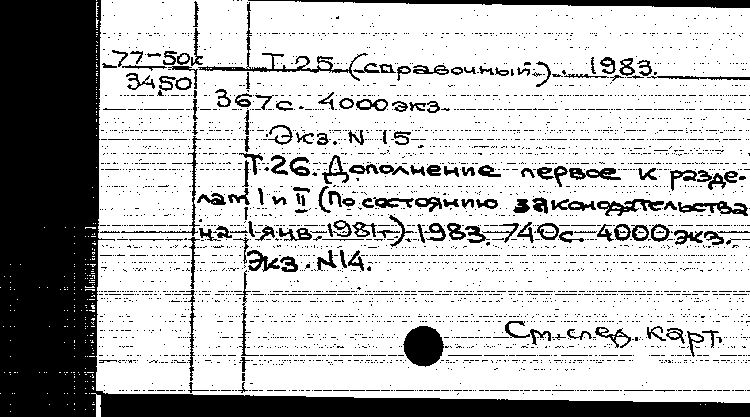 77-50к Т.25 (справочный). 1983.
3450
367с. 4000экз.
Экз. N 15.
Т.26. Дополнение первое к разде-
лам I и II (По состоянию законодательства
на 1 янв. 1981г). 1983. 740с. 4000 экз.
Экз. N14.
См. след. карт.